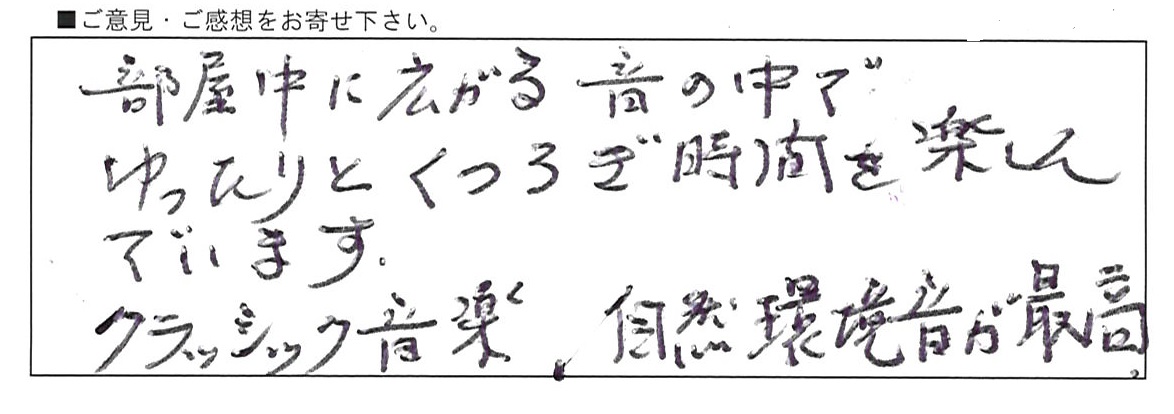 ■ご意見・ご感想をお寄せ下さい。
部屋中に広がる音の中で
ゆったりとくつろぎ時間を楽しん
でいます。
クラッシック音楽、自然環境音が最高。